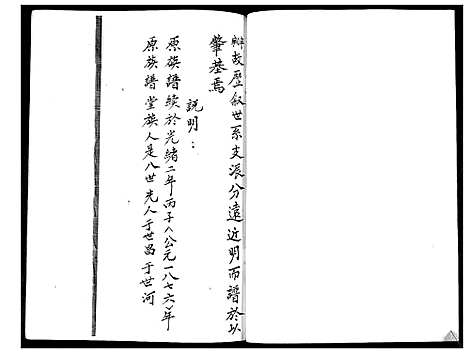 辨故歷叙世系支派分遠近明而譜於以
肇基焉
說明：
原族譜續於光緒二年丙子（公元一八七六）年
原族譜堂族人是八世先人于世昌于世河